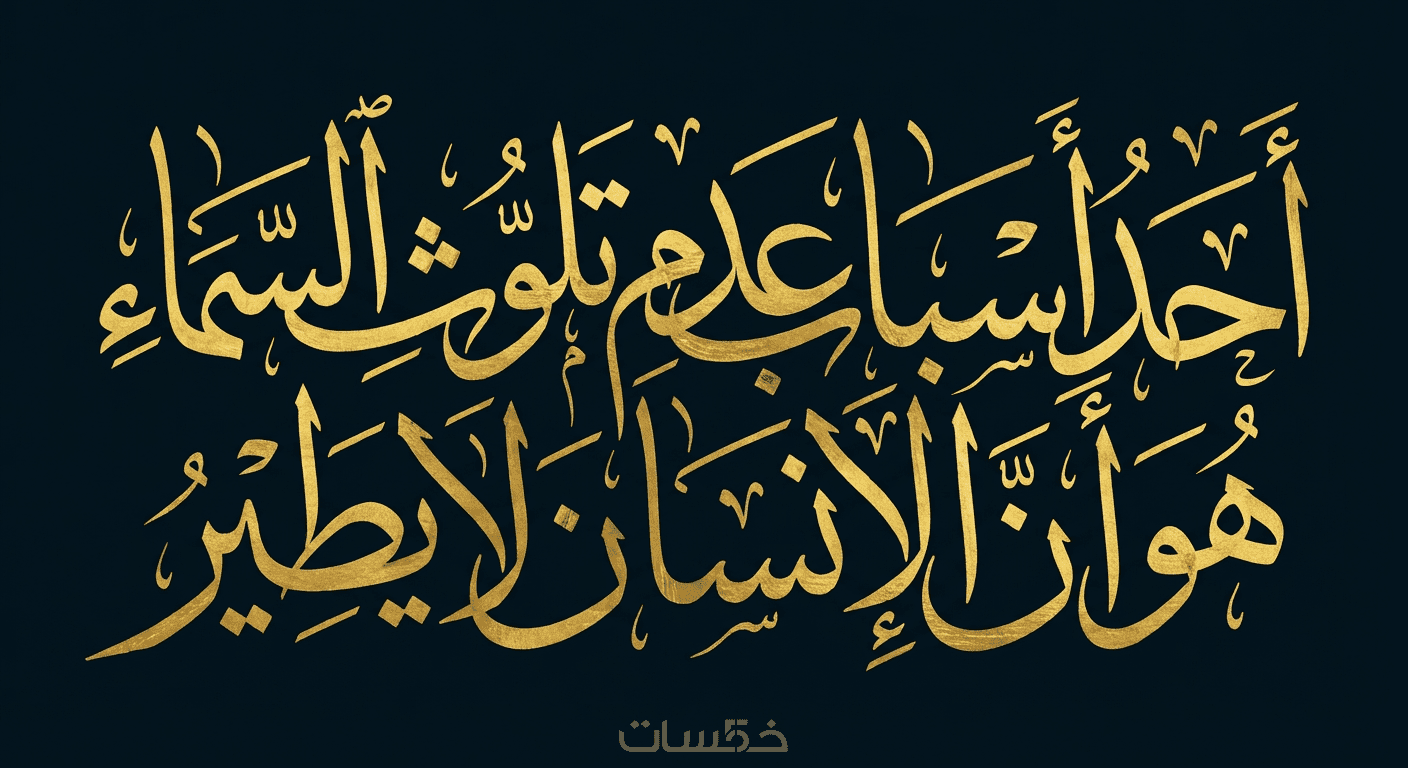 أَحَدُ أَسْبَابِ عَدَمِ تَلَوُّثِ ٱلسَّمَاءِ
هُوَ أَنَّ الْإِنسَانَ لَا يَطِيْرُ
خمسات